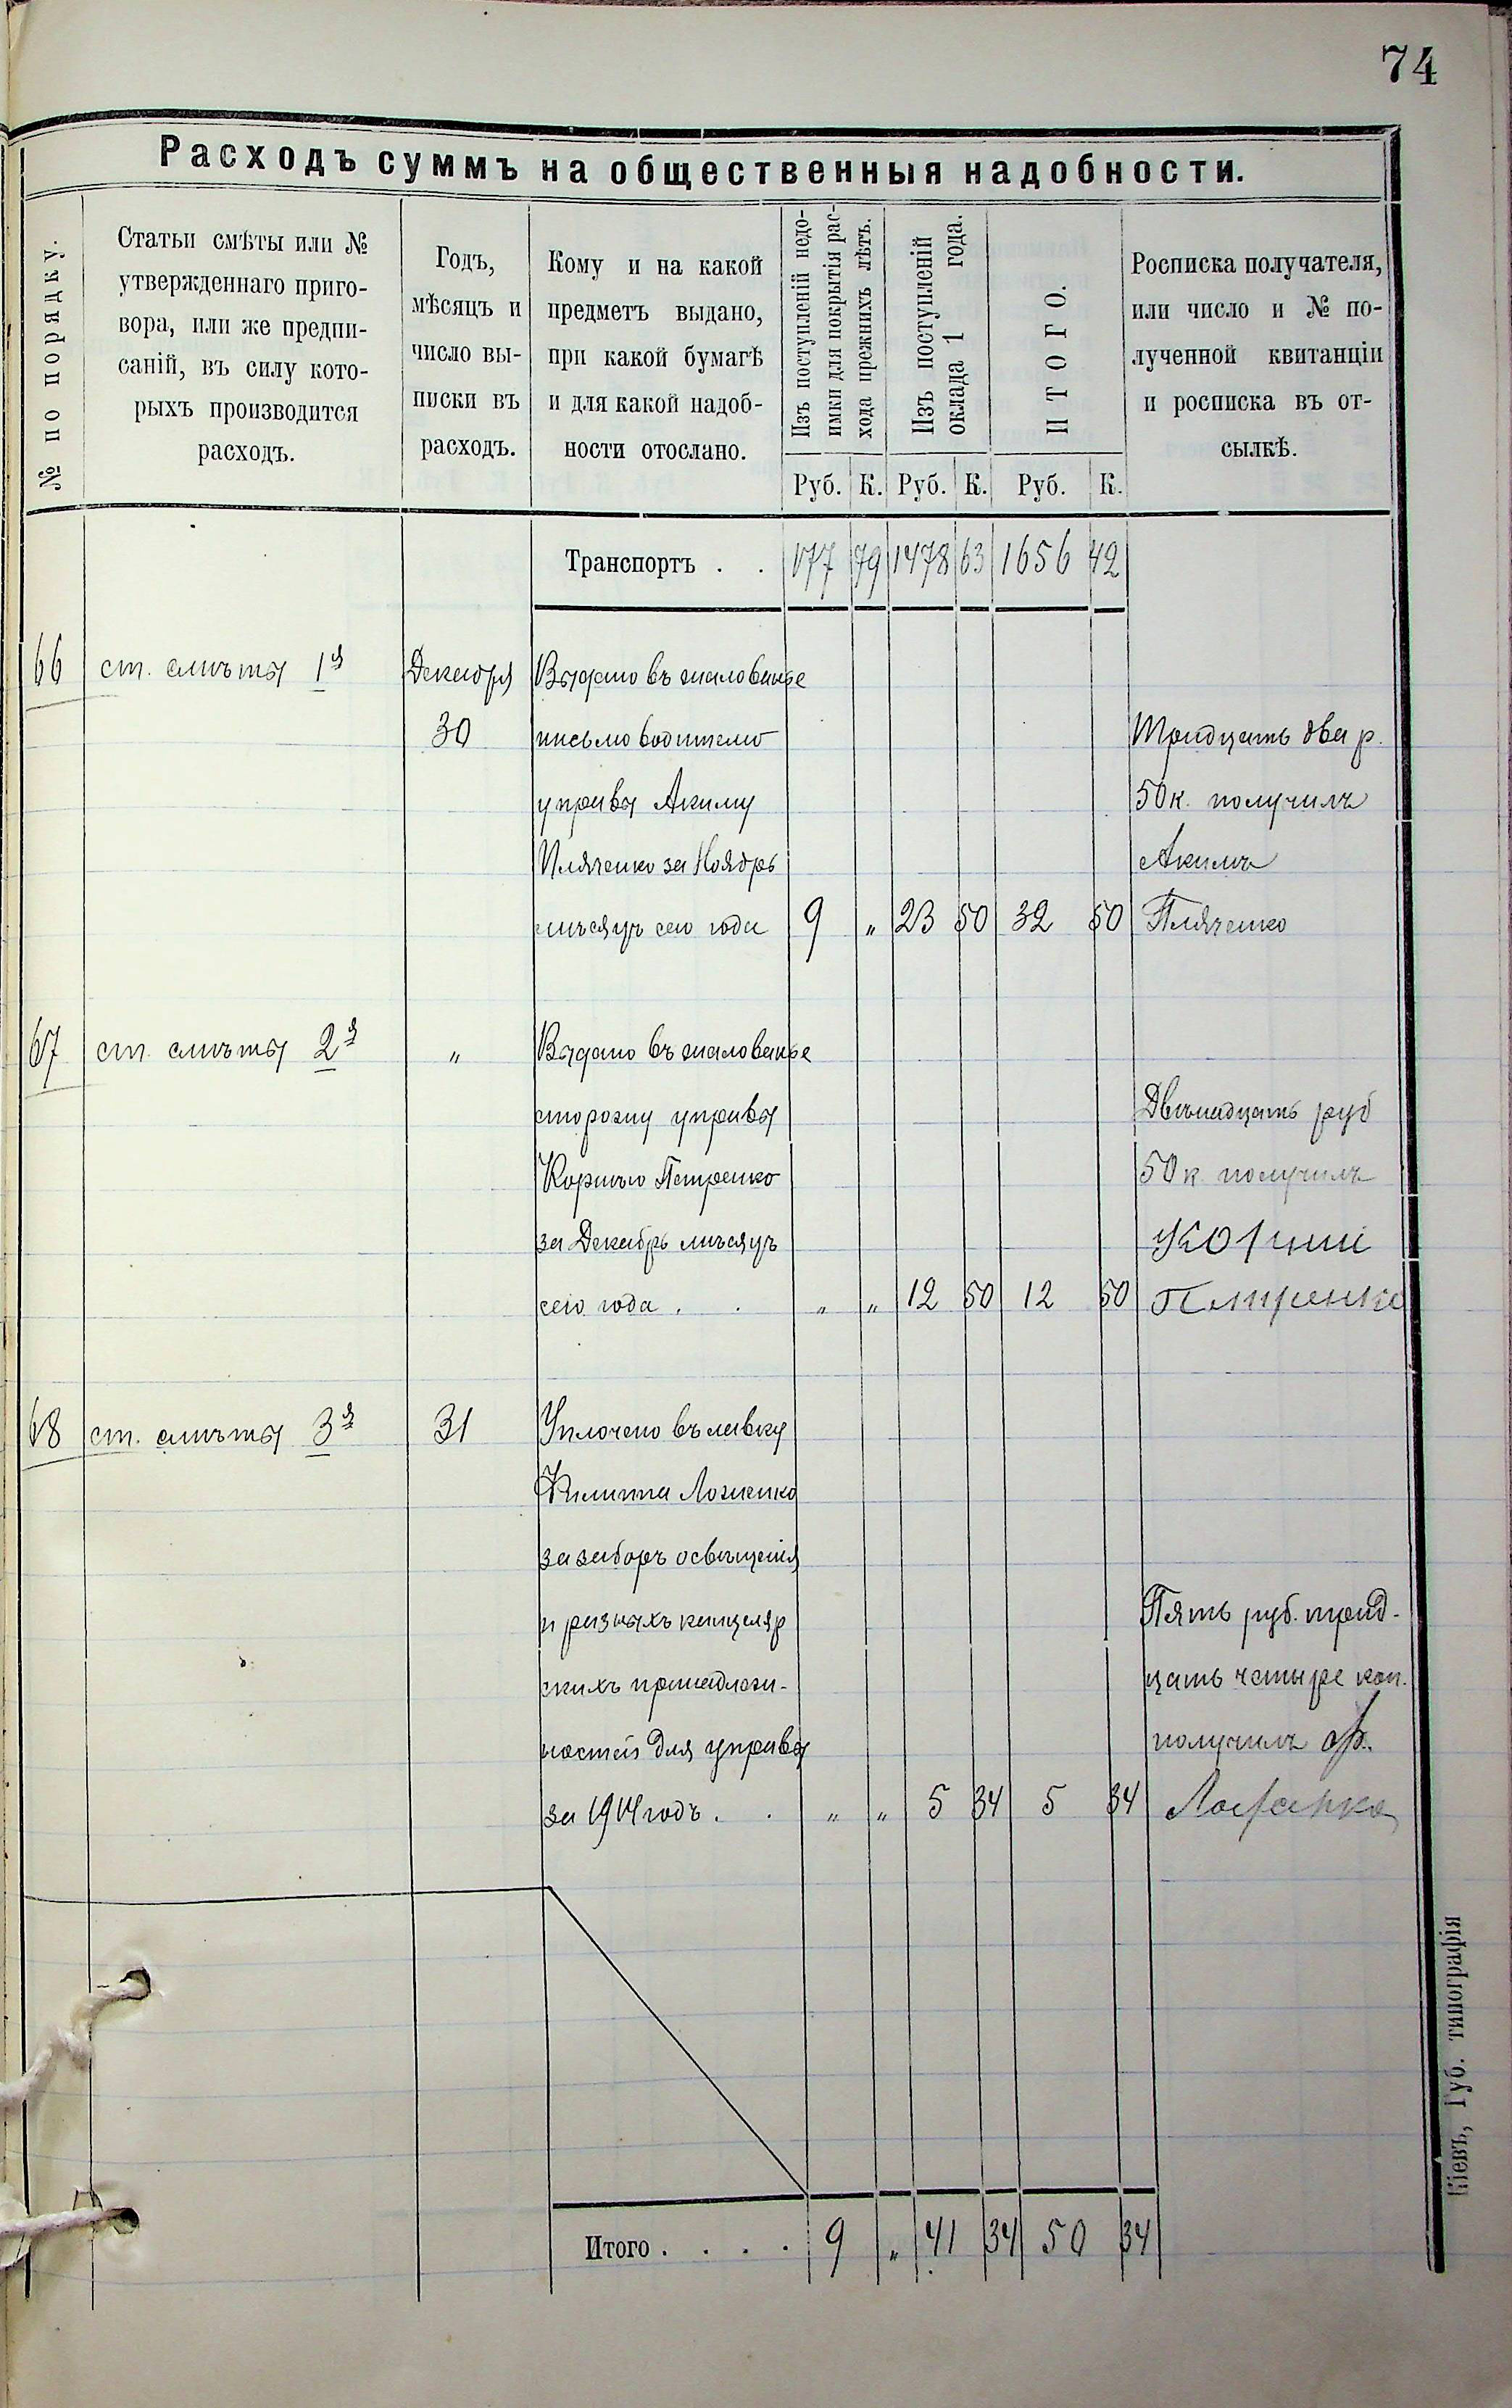 74
Расходъ суммъ на общественныя надобности.
№ по порядку.
Статьи смѣты или №
утвержденнаго приго-
вора, или же предпи-
саній, въ силу кото-
рыхъ производится
расходъ.
Годъ,
мѣсяцъ и
число вы-
писки въ
расходъ.
Кому и на какой
предметъ выдано,
при какой бумагѣ
и для какой надоб-
ности отослано.
Изъ поступленій недо-
имки для покрытія рас-
хода прежнихъ лѣтъ.
Изъ поступленій
оклада 1 года.
ИТОГО.
Росписка получателя,
или число и № по-
лученной квитанціи
и росписка въ от-
сылкѣ.
Руб. К. Руб. К. Руб. К.
Транспортъ . . 177 79 1478 63 1656 42
66 ст. смѣты 1я Декабря Выдано въ жалованье
30 письмоводителю Тридцать два р.
управы Акиму 50 к. получилъ
Пляченко за Ноябрь Акимъ
мѣсяцъ сего года 9 „ 23 50 32 50 Пляченко
67 ст. смѣты 2я „ Выдано въ жалованье
сторожу управы Двѣнадцать руб
Корнѣю Петренко 50 к. получилъ
за Декабрь мѣсяцъ
сего года . . „ „ 12 50 12 50 Петренко
68 ст. смѣты 3я 31 Уплочено въ лавку
Филиппа
за заборъ освѣщенія
и разныхъ канцеляр Пять руб. трид-
скихъ принадлеж- цать четыре коп.
ностей для управы получилъ Ф.
за 1914 годъ . . „ „ 5 34 5 34
Итого . . . . 9 „ 41 34 50 34
Кіевъ, Губ. типографія